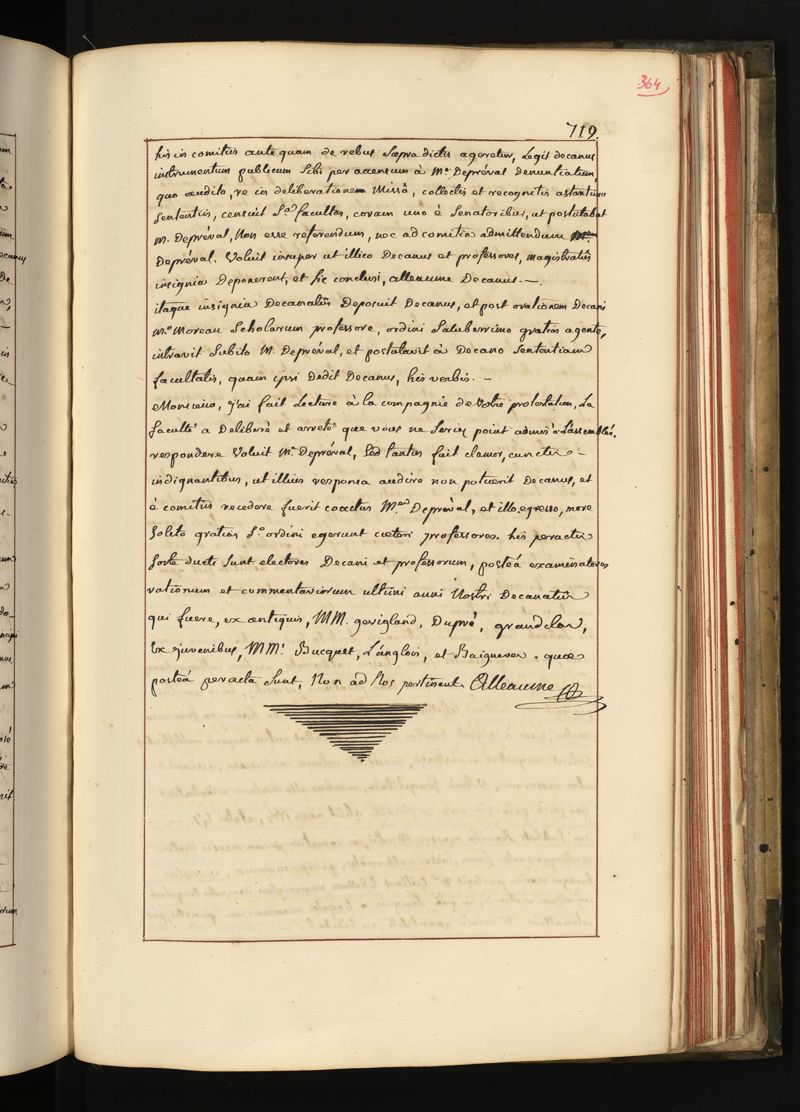 364
719.
his in comitiis antequam de rebus supra dictis ageretur, Legit decanus
instrumentum publicum sibi per accensum à Mo. Depréval denuntiatum,
quo audito, re in deliberationem Missâ, collectis et recognitis astantium
Sententiis, censuit S.a facultas, coram uno è Senatoribus, ut postulabat
M. Depréval, Non esse referendum, nec ad comitia admittendum Mum
Depréval. Voluit insuper ut illico Decanus et professores, magistratûs
insignia Deponerent, et sic conclusi, alleaume Decanus. —
itaque insignia Decanatûs Deposuit Decanus, et post orationem Decani
Mo. Moreau Scholarum professore, ordini Saluberrimo gratias agente,
intravit Subito M. Depréval, et postulavit à Decano Sententiam
facultatis, quam ipsi Dedit Decanus, his verbis. —
Monsieur, j'ai fait Lecture à la compagnie de Votre protestation, La
faculté a Délibéré et arreté que vous ne seriez point admis à L'assemblée,
respondere Voluit Mr. Depréval, Sed tantus fuit clamor, cunctis —
indignantibus, ut illius responsa audire non potuerit Decanus, et
è comitiis recedere fuerit coactus M.us Depréval, et illo egresso, more
Solito gratias S.o ordini egerunt cæteri professores. his peractis
Sorte ducti Sunt electores Decani et professorum, posteà examinatores
rationum et commentariorum ultimi anni Nostri Decanatûs
qui fuere, ex antiquis, MM. gevigland, Dupré, grandclas,
Ex junioribus, MM. Bucquet, Langlois, et Baigneres. quæ
posteà peracta Sunt, Non ad Nos pertinent Alleaume